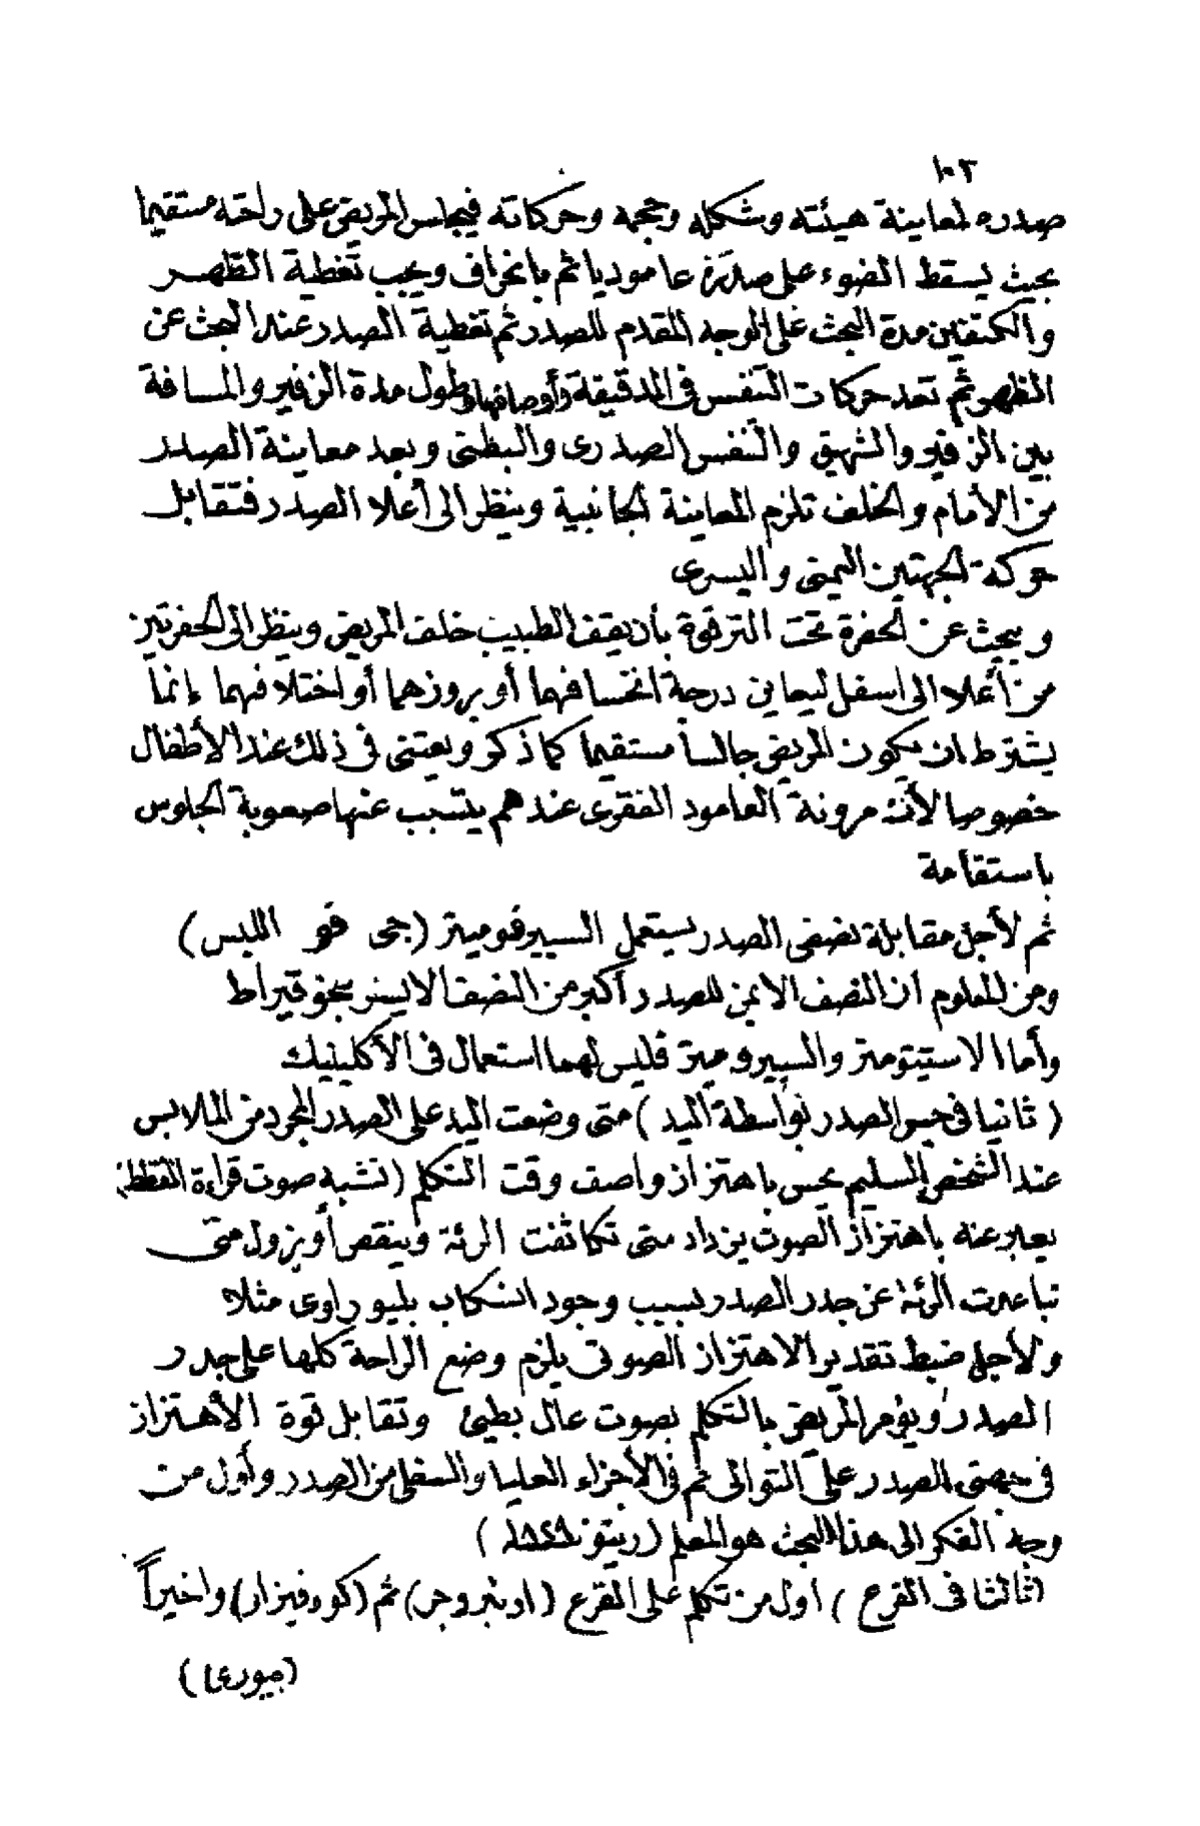 ١٠٢
صدره لمعاينة هيئته وشكله وحجمه وحركاته فيجلس المريض على راحته مستقيما
بحيث يسقط الضوء على صدره عاموديا ثم بانحراف ويجب تغطية الظهر
والكتفين مدة البحث على الوجه المقدم للصدر ثم تغطية الصدر عند البحث عن
الظهر ثم تعد حركات التنفس فى الدقيقة وأوصافها وطول مدة الزفير والمسافة
بين الزفير والشهيق والتنفس الصدرى والبطنى وبعد معاينة الصدر
من الأمام والخلف تلزم المعاينة الجانبية وينظر الى أعلا الصدر فتقابل
حركة الجهتين اليمنى واليسرى
ويبحث عن الحفرة تحت الترقوة بأن يقف الطبيب خلف المريض وينظر الى الحفرتين
من أعلا الى اسفل ليعاين درجة انخسافهما أو بروزهما أو اختلافهما إنما
يشترط ان يكون المريض جالسا مستقيما كما ذكر ويعتنى فى ذلك عند الأطفال
خصوصا لأن مرونة العامود الفقرى عندهم يتسبب عنها صعوبة الجلوس
باستقامة
ثم لأجل مقابلة نصفى الصدر يستعمل السيرفوميتر (جى فو الليس)
ومن المعلوم أن النصف الايمن للصدر أكبر من النصف الايسر بنحو قيراط
وأما الاستيتومتر والسپيروميتر فليس لهما استعمال فى الأكلينيك
(ثانيا فى جس الصدر بواسطة اليد) متى وضعت اليد على الصدر المجرد من الملابس
عند الشخص السليم يحس باهتزاز واصف وقت التكلم (تشبه صوت قراءة القطط)
يعبر عنه باهتزاز الصوت يزداد متى تكاثفت الرئة وينقص أو يزول متى
تباعدت الرئة عن جدر الصدر بسبب وجود انسكاب بليوراوى مثلا
ولأجل ضبط تقدير الاهتزاز الصوتى يلزم وضع الراحة كلها على جدر
الصدر ويؤمر المريض بالتكلم بصوت عال بطيئ وتقابل قوة الأهتزاز
فى جهتى الصدر على التوالى ثم فى الأجزاء العليا والسفلى من الصدر وأول من
وجه الفكر الى هذا البحث هو المعلم (رينو
(ثالثا فى القرع) اول من تكلم على القرع (اونبروجر) ثم (كورفيزار) واخيراً